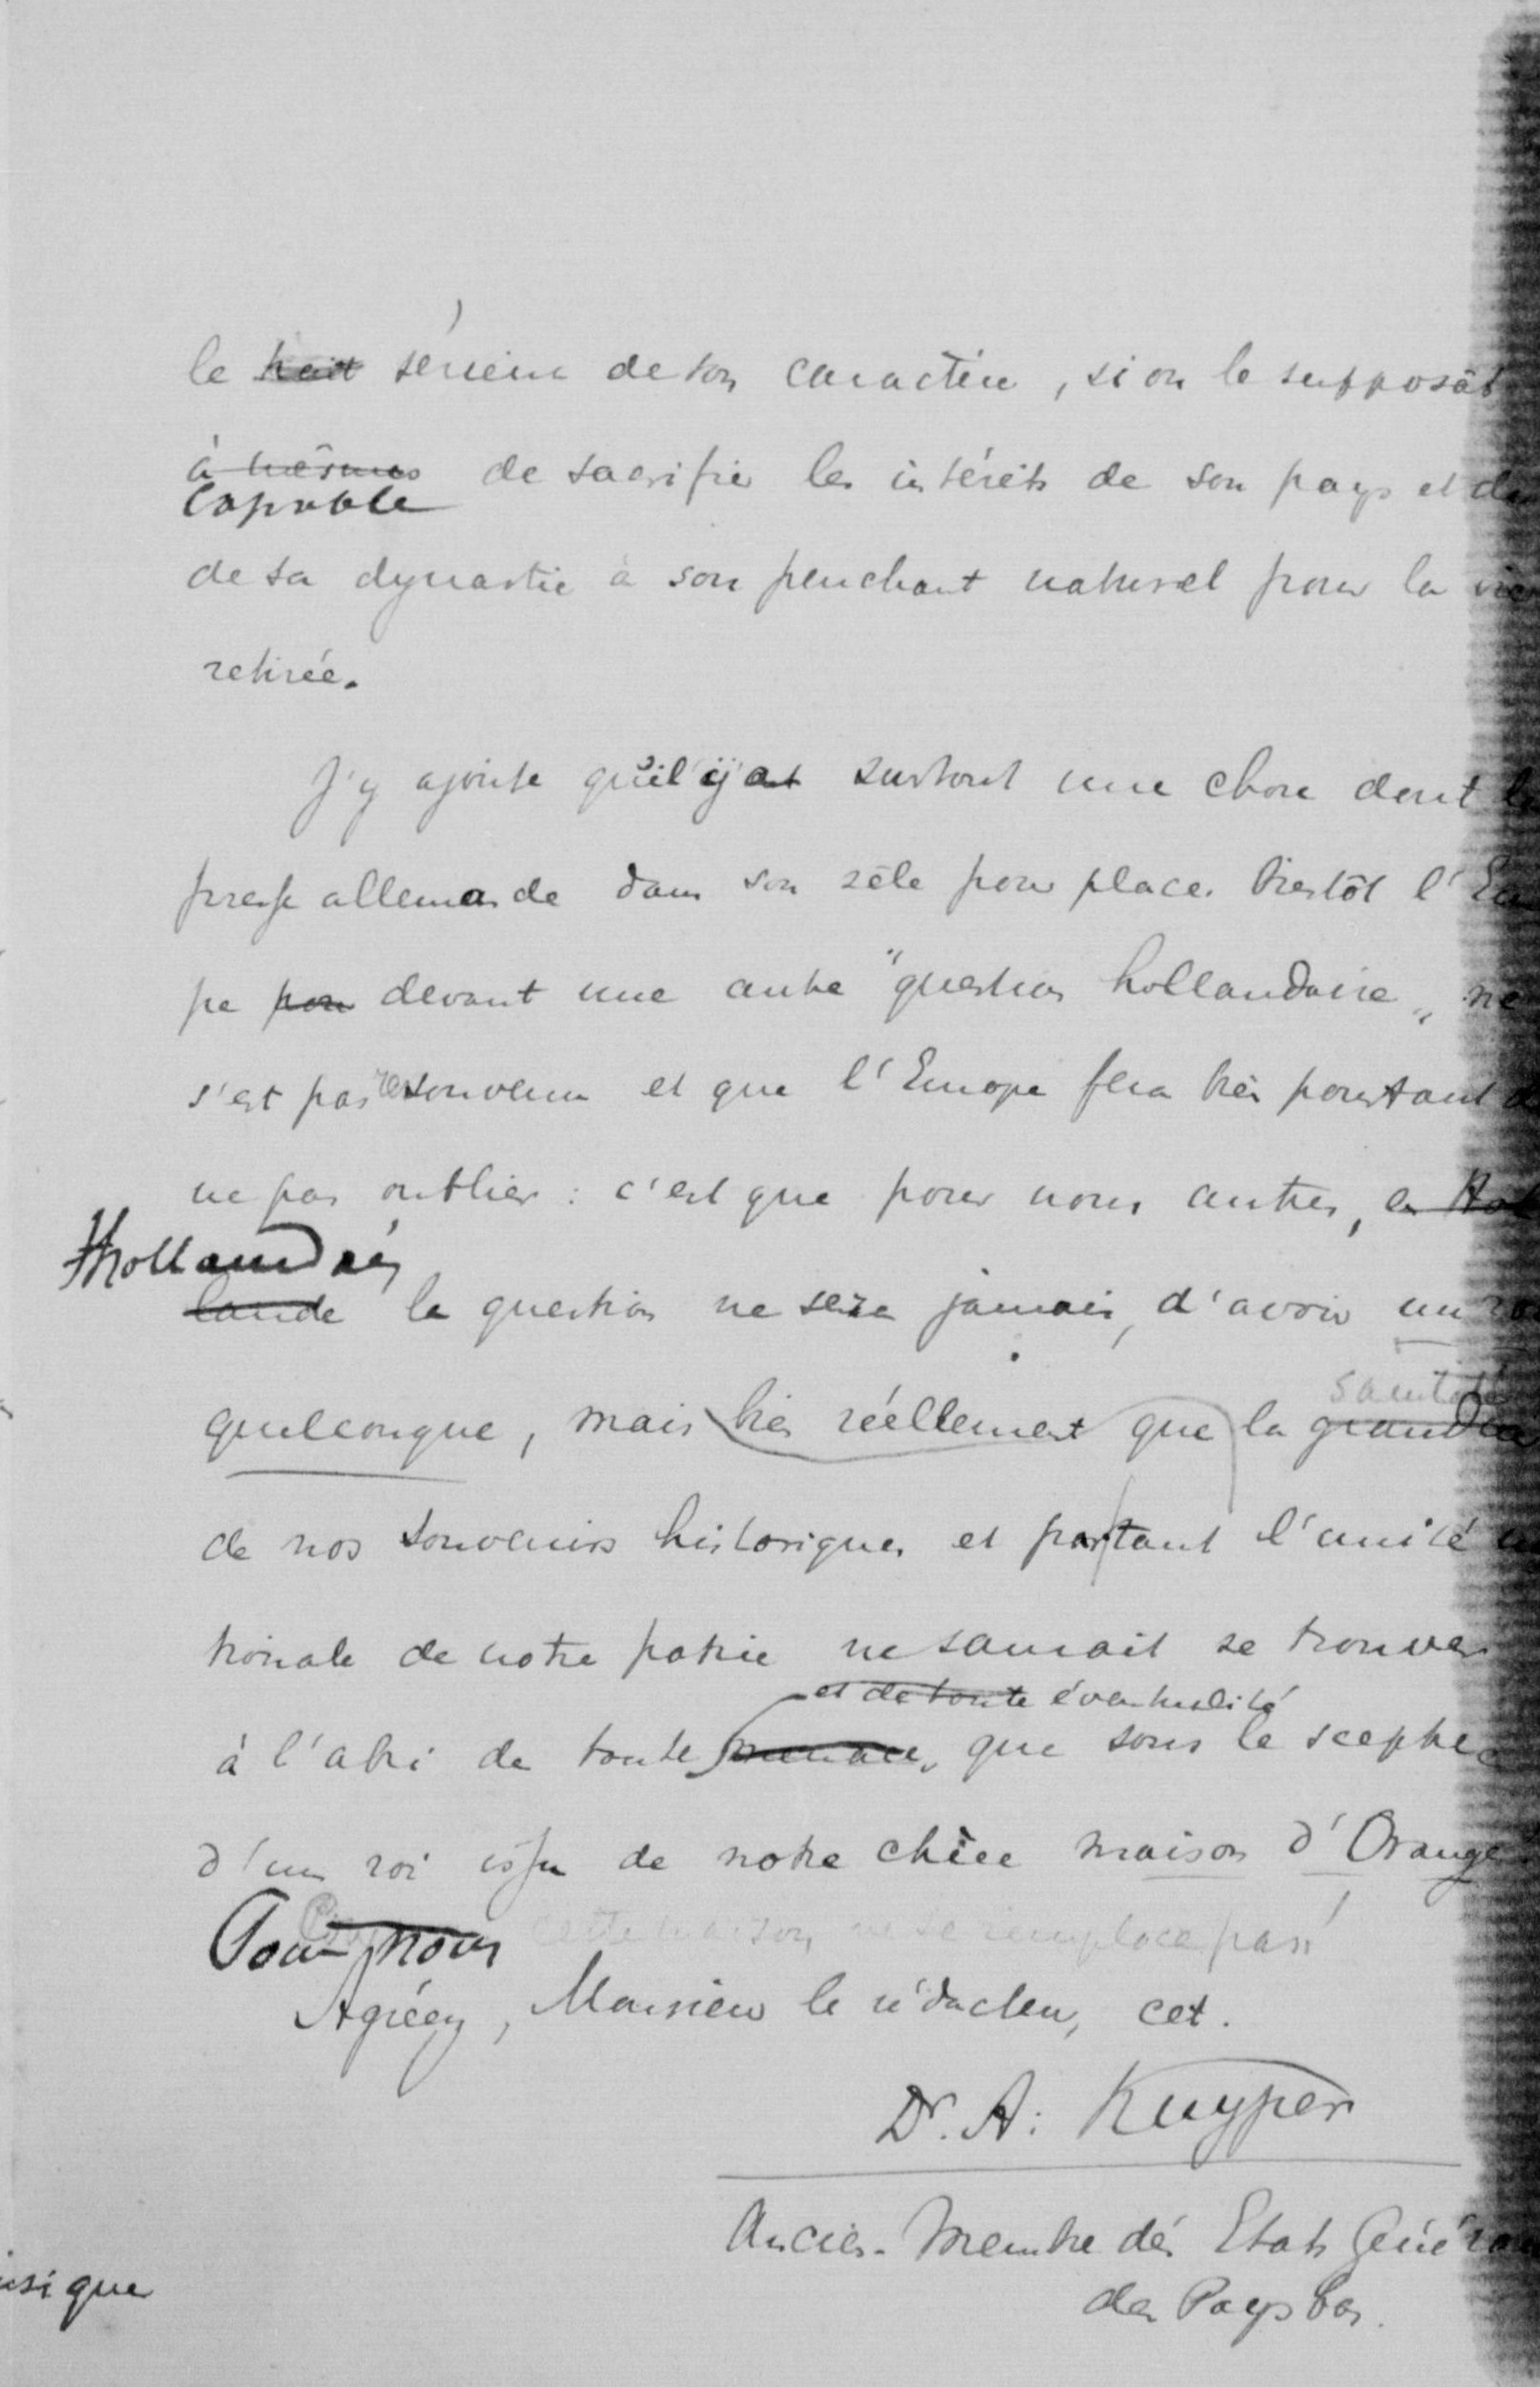 le trait sérieux de son caractère, si on le supposât
à mêmes de sacrifier les intérêts de son pays et
capable
de sa dynastie à son penchant naturel pour la vie
retirée.
J'y ajoute qu'il y a surtout une chose dont
presse allemande dans son zèle pour placer bientôt l'Eu
pe pour devant une autre "question hollandaise„ ne
s'est pas resouvenu et que l'Europe fera bien pourtant
ne pas oublier : c'est que pour nous autres, en Hol
Hollandais
lande la question ne sera jamais, d'avoir un
quelconque, mais bien réellement que la grandeur
de nos souvenirs historiques et partant l'unité
tionale de notre patrie ne saurait se trouver
et de toute éventualité
à l'abri de toute menace, que sous le sceptre
d'un roi issu de notre chère maison d'Orange
Pour nous cette maison, ne se remplace pas!
Agréez, Monsieur le rédacteur, cet.
Dr. A. Kuyper
Ancien-Membre des Etats Généraux
des Pays bas.
usique